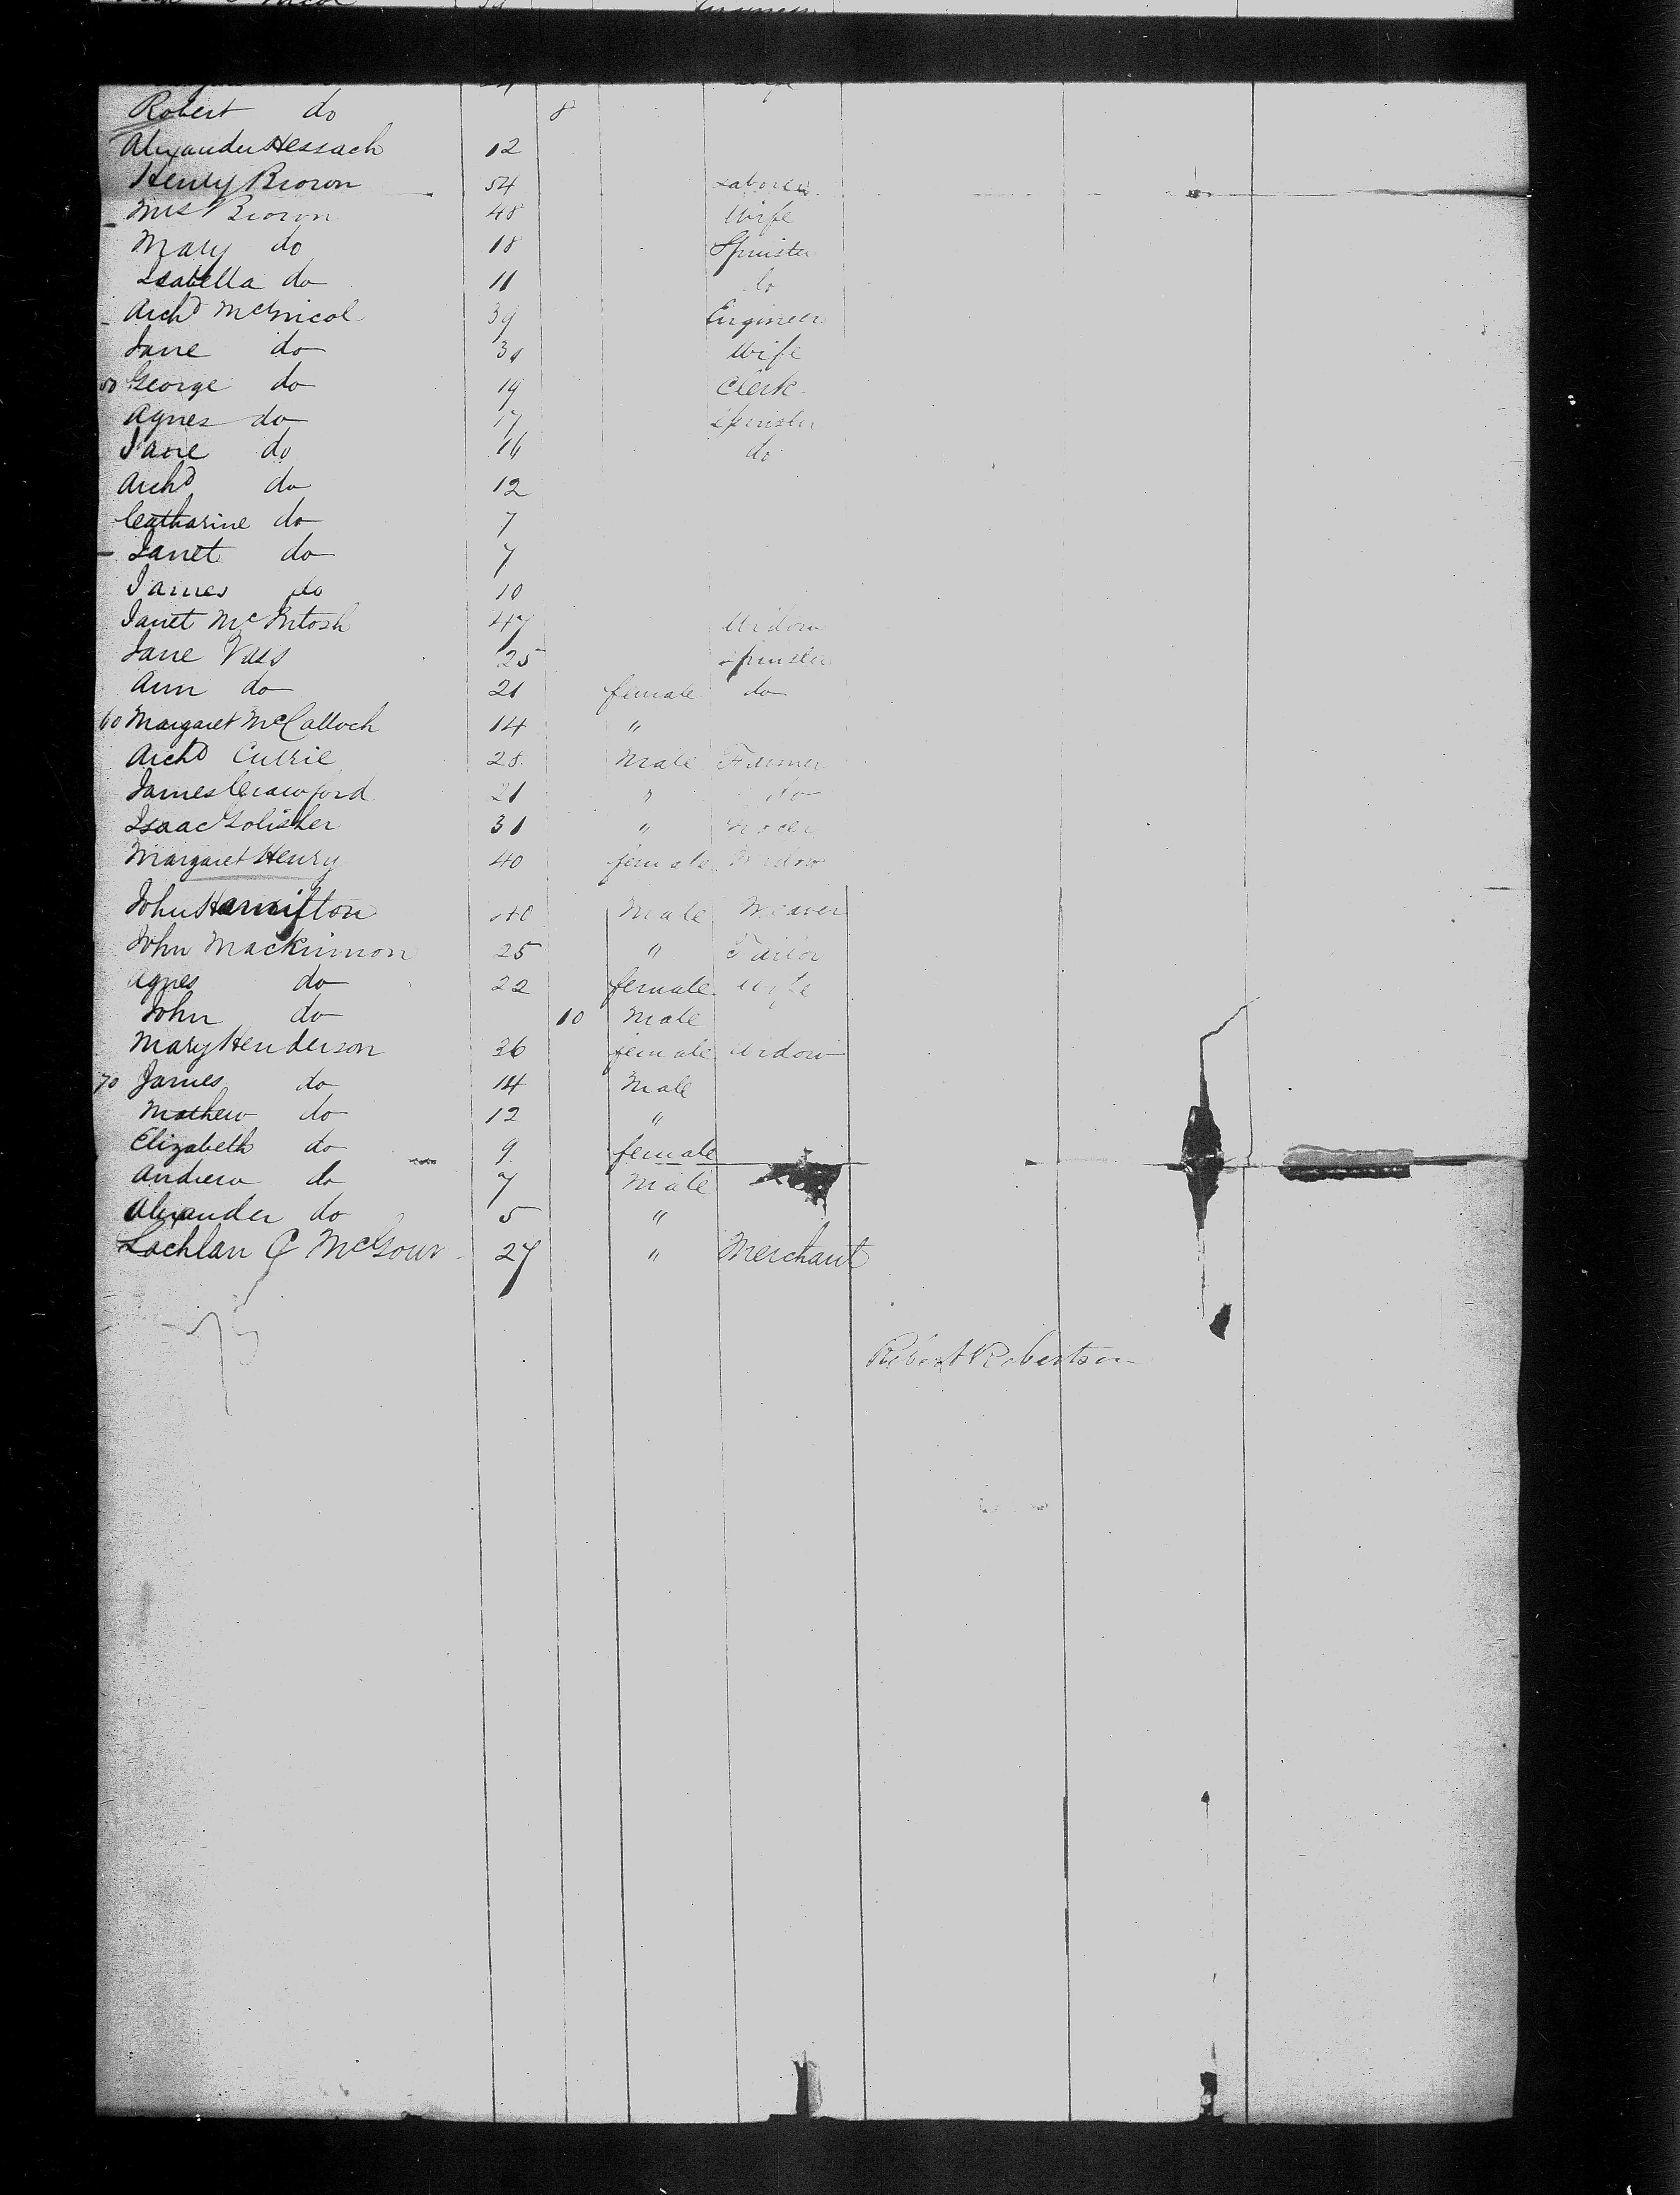 Engineer
Robert do 8
Alexander Hessach 12
Henry Brown 54 Laborer
Mrs Brown 48 Wife
Mary do 18 Spinster
Isabella do 11 do
Archd McNicol 39 Engineer
Jane do 31 Wife
50 George do 19 Clerk
Agnes do 17 Spinster
Jane do 16 do
Archd do 12
Catharine do 7
Janet do 7
James do 10
Janet McIntosh 47 Widow
Jane Vass 25 Spinster
Ann do 21 female do
60 Margaret McCalloch 14 "
Archd Currie 28 Male Farmer
James Crawford 21 " do
Isaac Golisher 31 " Grocer
Margaret Henry 40 female Widow
John Hamilton 40 Male Weaver
John Mackinnon 25 " Tailor
Agnes do 22 female Wife
John do 10 Male
Mary Henderson 36 female Widow
70 James do 14 Male
Mathew do 12 "
Elizabeth do 9 female
Andrew do 7 Male
Alexander do 5 "
Lachlan C McGown 27 " Merchant
75
Robert Robertson